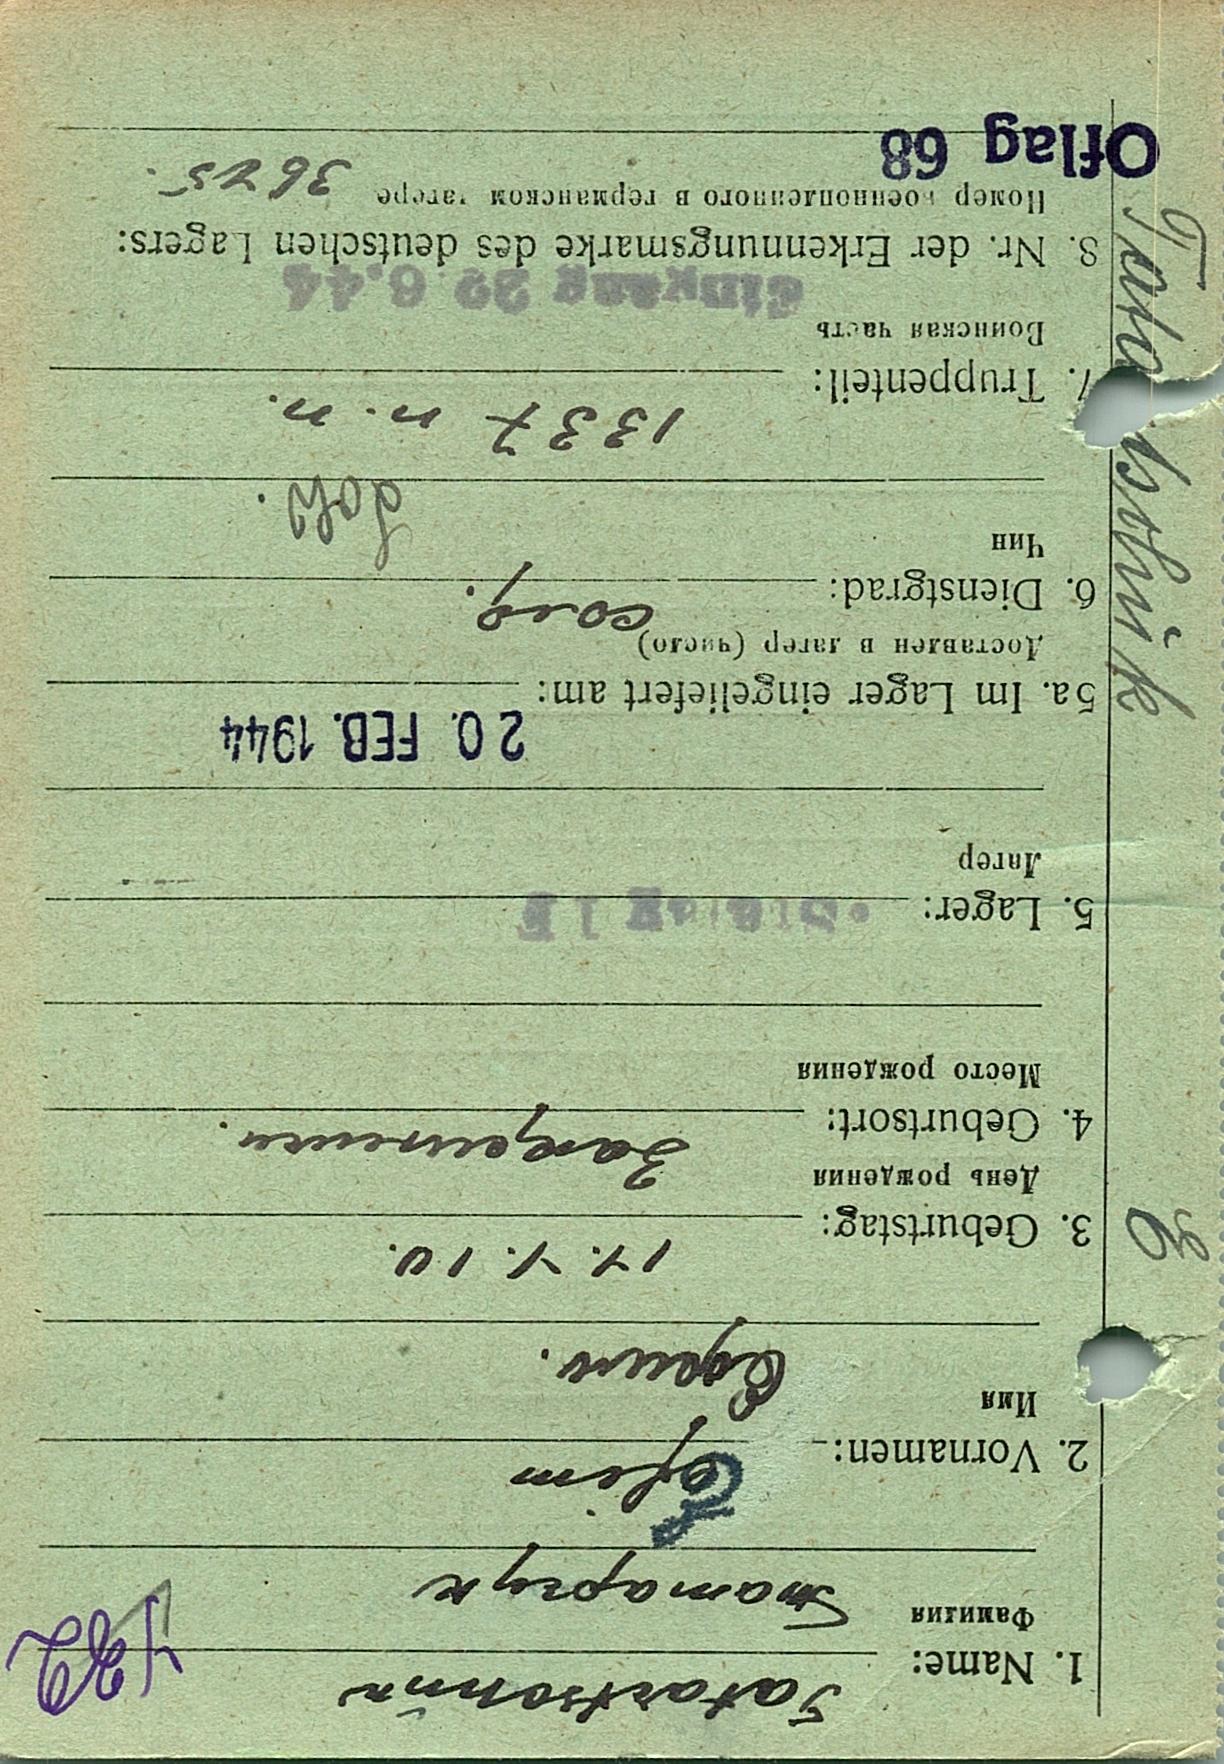 1. Name: Tatartschuk
Фамилия Татарчук
2. Vornamen: Efim
Имя Ефим.
3. Geburtstag: 17. V. 10.
День рождения
4. Geburtsort:
Место рождения
5. Lager: Stalag I F
Лагерь
20. FEB. 1944
5a. Im Lager eingeliefert am:
Доставлен в лагерь (число)
6. Dienstgrad: солд.
Чин
Sold.
1337 п. п.
7. Truppenteil:
Воинская часть
Eingang 22 6.44
8. Nr. der Erkennungsmarke des deutschen Lagers:
Номер военнопленного в германском лагере 3625.
Oflag 68